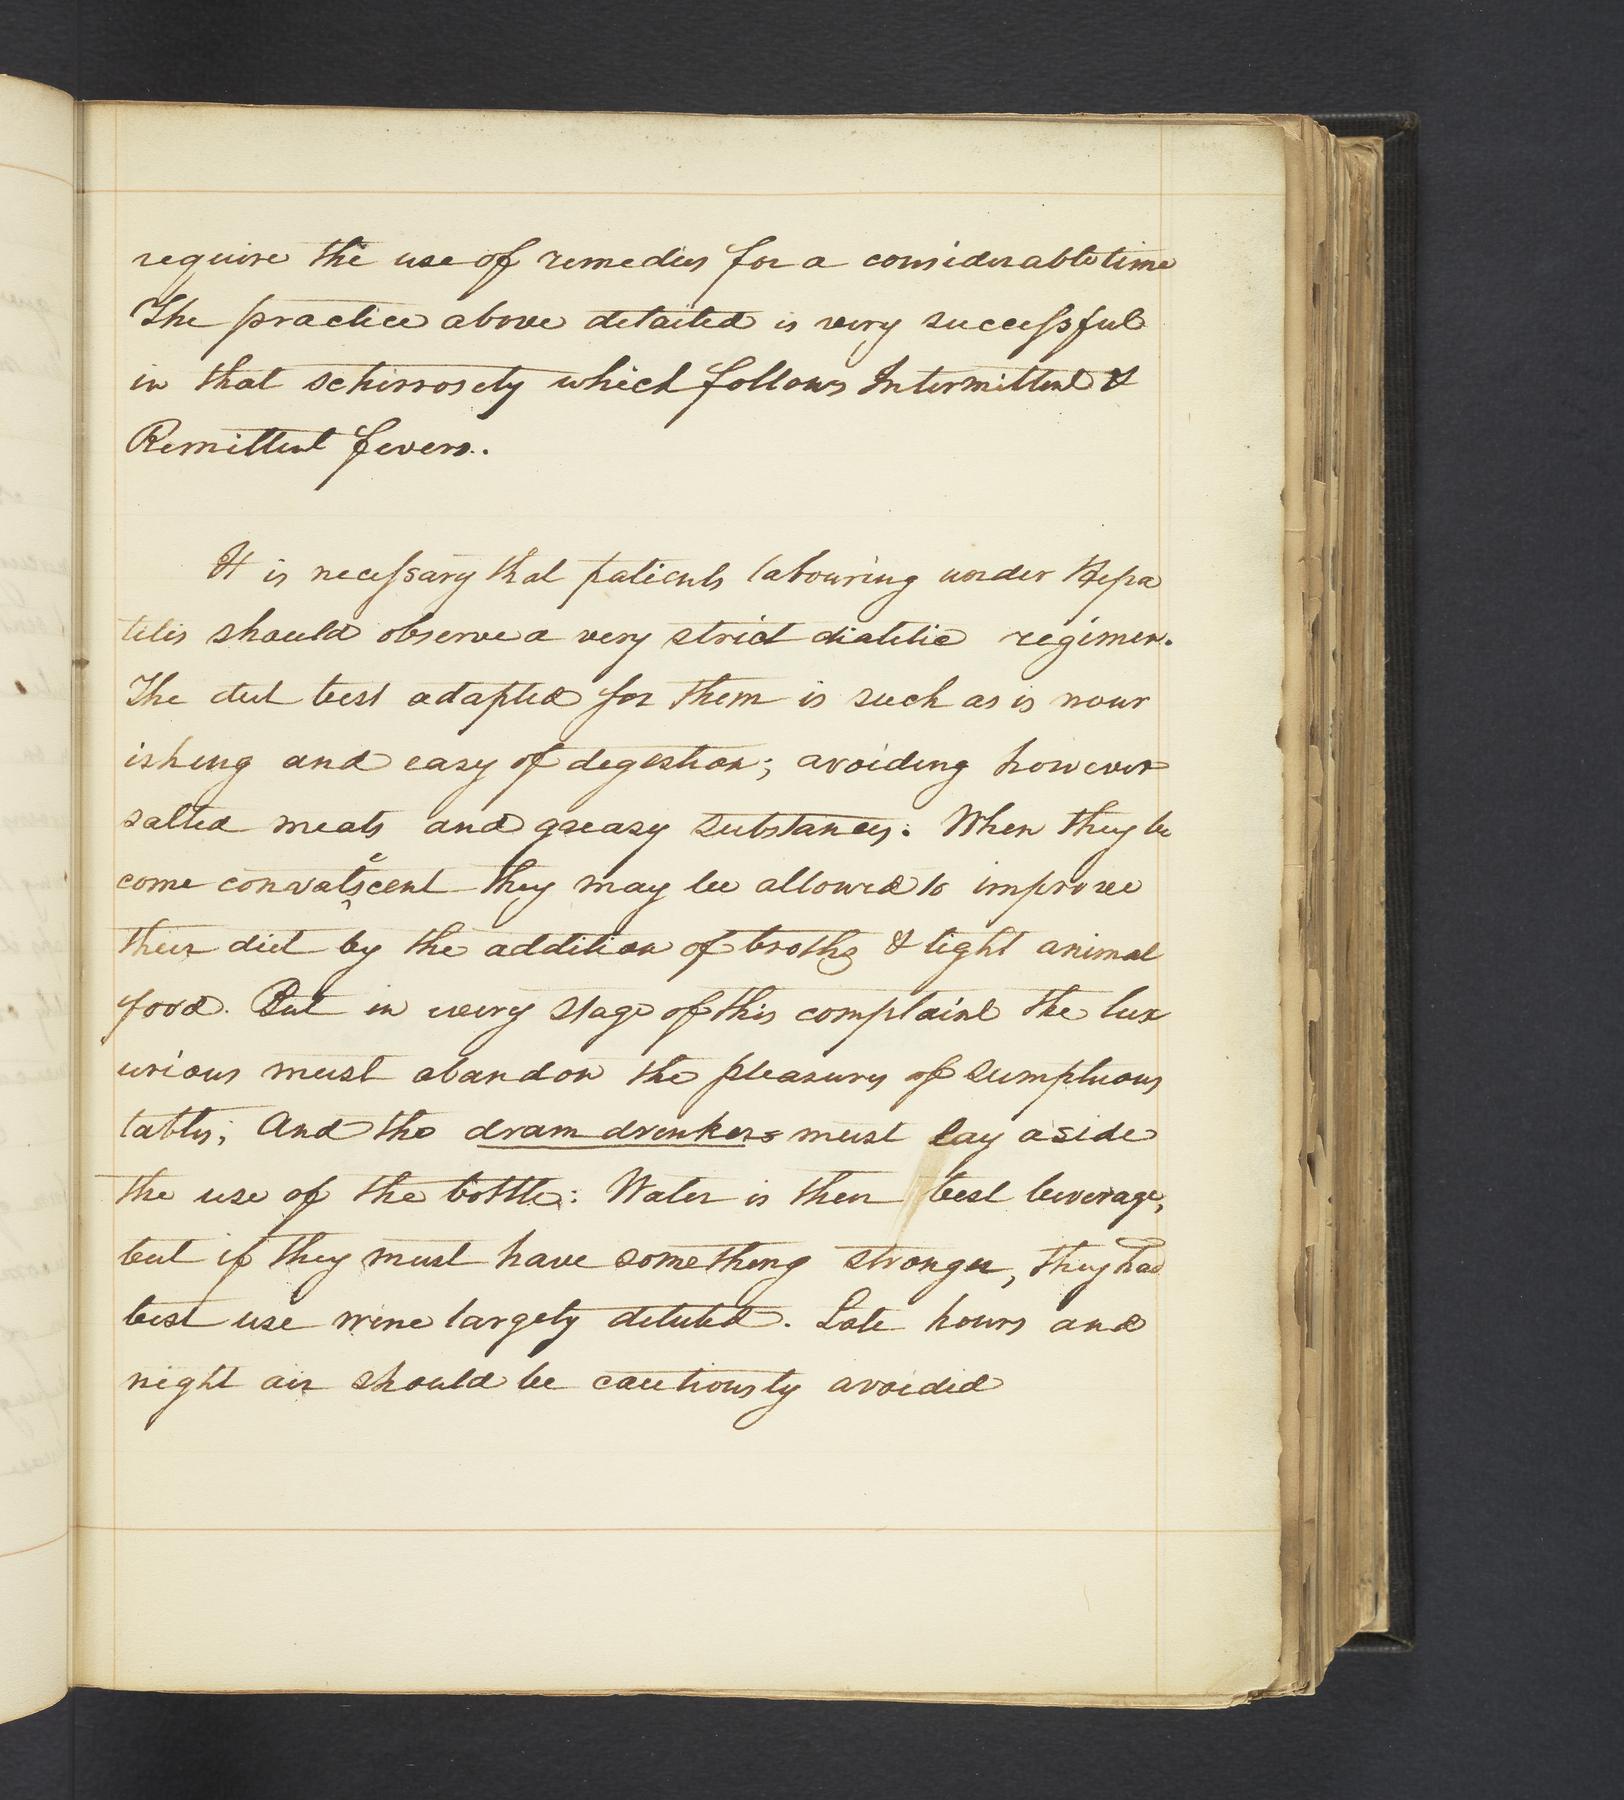 require the use of remedies for a considerable time
The practice above detailed is very successful
in that schirrosety which follows Intermittent &
Remittent fevers.
It is necessary that patients labouring under Hepa
titis should observe a very strict diatetic regimen.
The diet best adapted for them is such as is nour
ishing and easy of degestion; avoiding however
salted meats and greasy substances: When they be
come convalescent they may be allowed to improve
their diet by the addition of broths & light animal
food. But in every stage of this complaint the lux
urious must abandon the pleasures of sumptuous
tables; And the dram drenkers must lay aside
the use of the bottle: Water is then best beverage,
but if they must have something stronger, they had
best use wine largely deluted. Late hours and
night air should be cautiously avoided